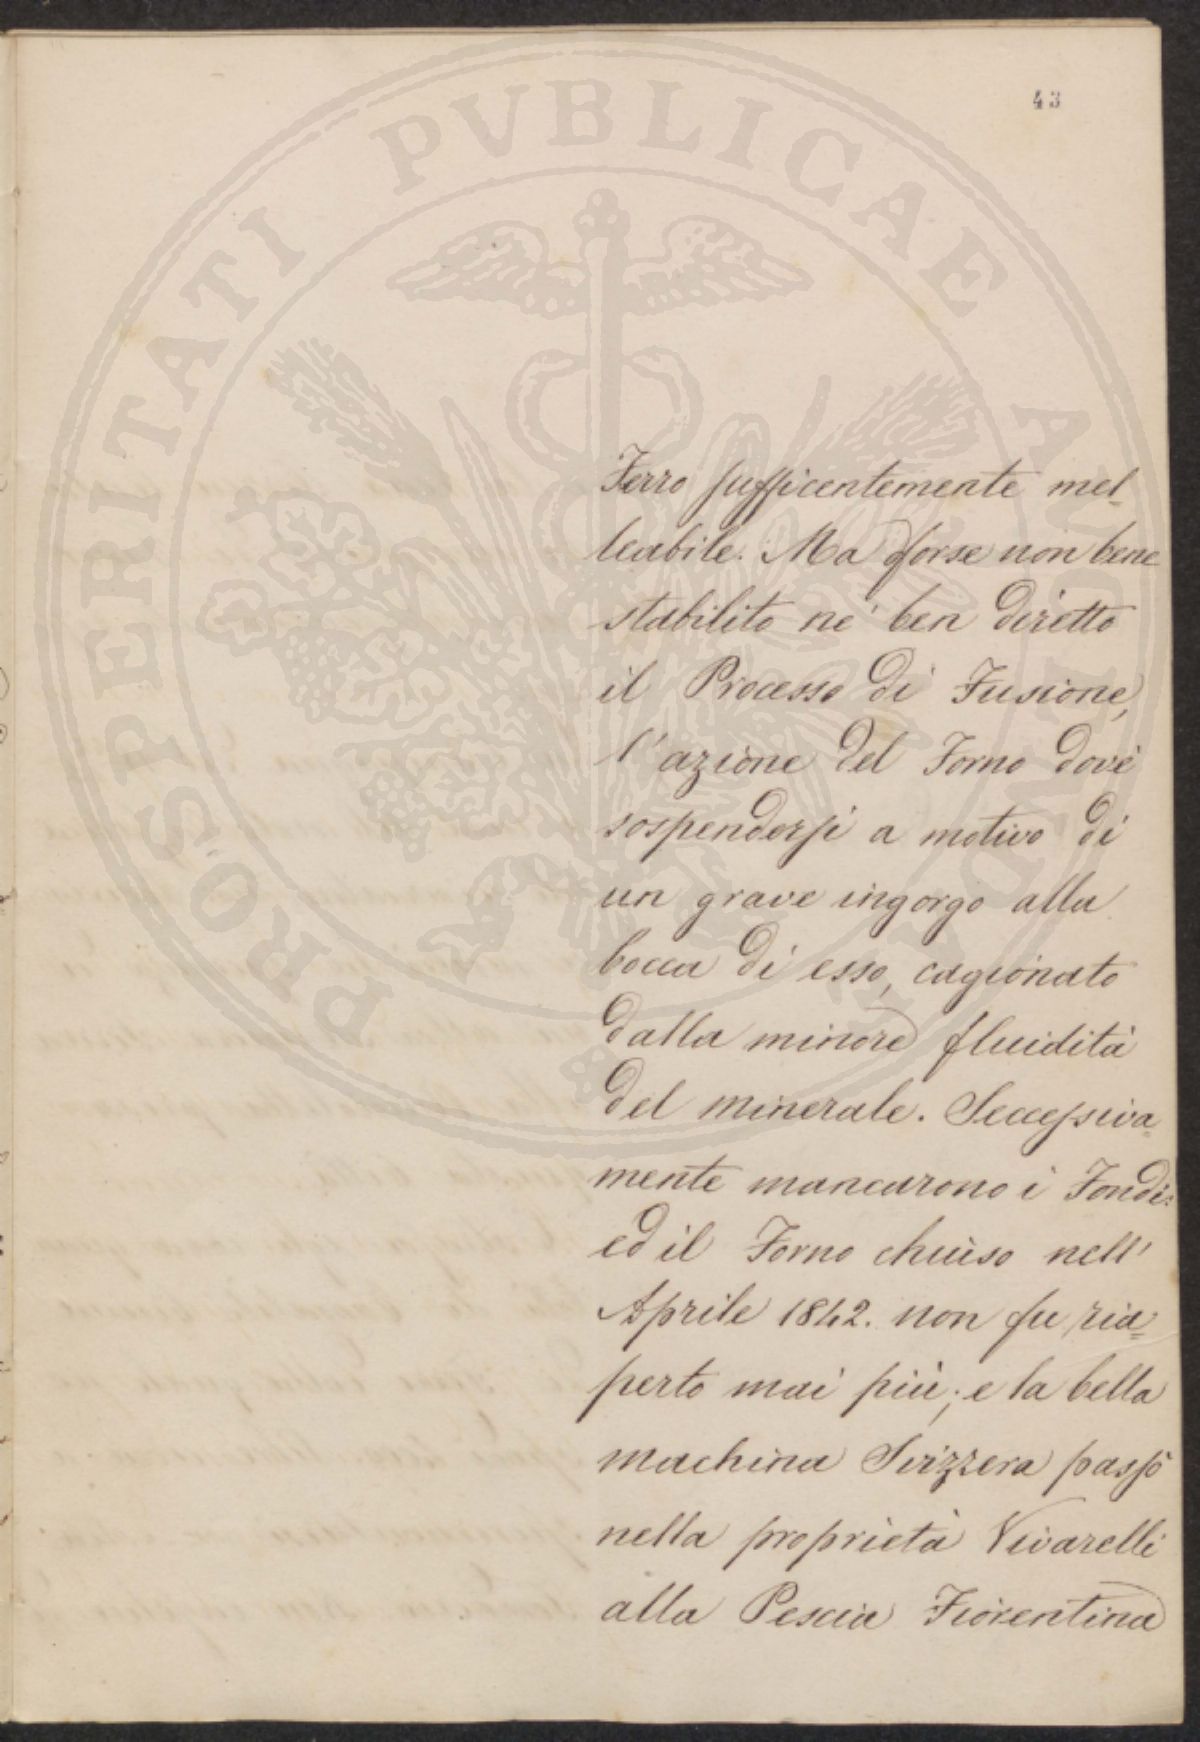 43
PROSPERITATI PVBLICAE AVGENDAE
Ferro sufficentemente mel-
leabile. Ma forse non bene
stabilito ne' ben diretto
il Processo di Fusione,
l'azione del Forno dovè
sospendersi a motivo di
un grave ingorgo alla
bocca di esso, cagionato
dalla minore fluidità
del minerale. Seccessiva=
mente mancarono i Fondi:
ed il Forno chiuso nell'
Aprile 1842. non fu ria=
perto mai più; e la bella
machina Svizzera passò
nella proprietà Vivarelli
alla Pescia Fiorentina